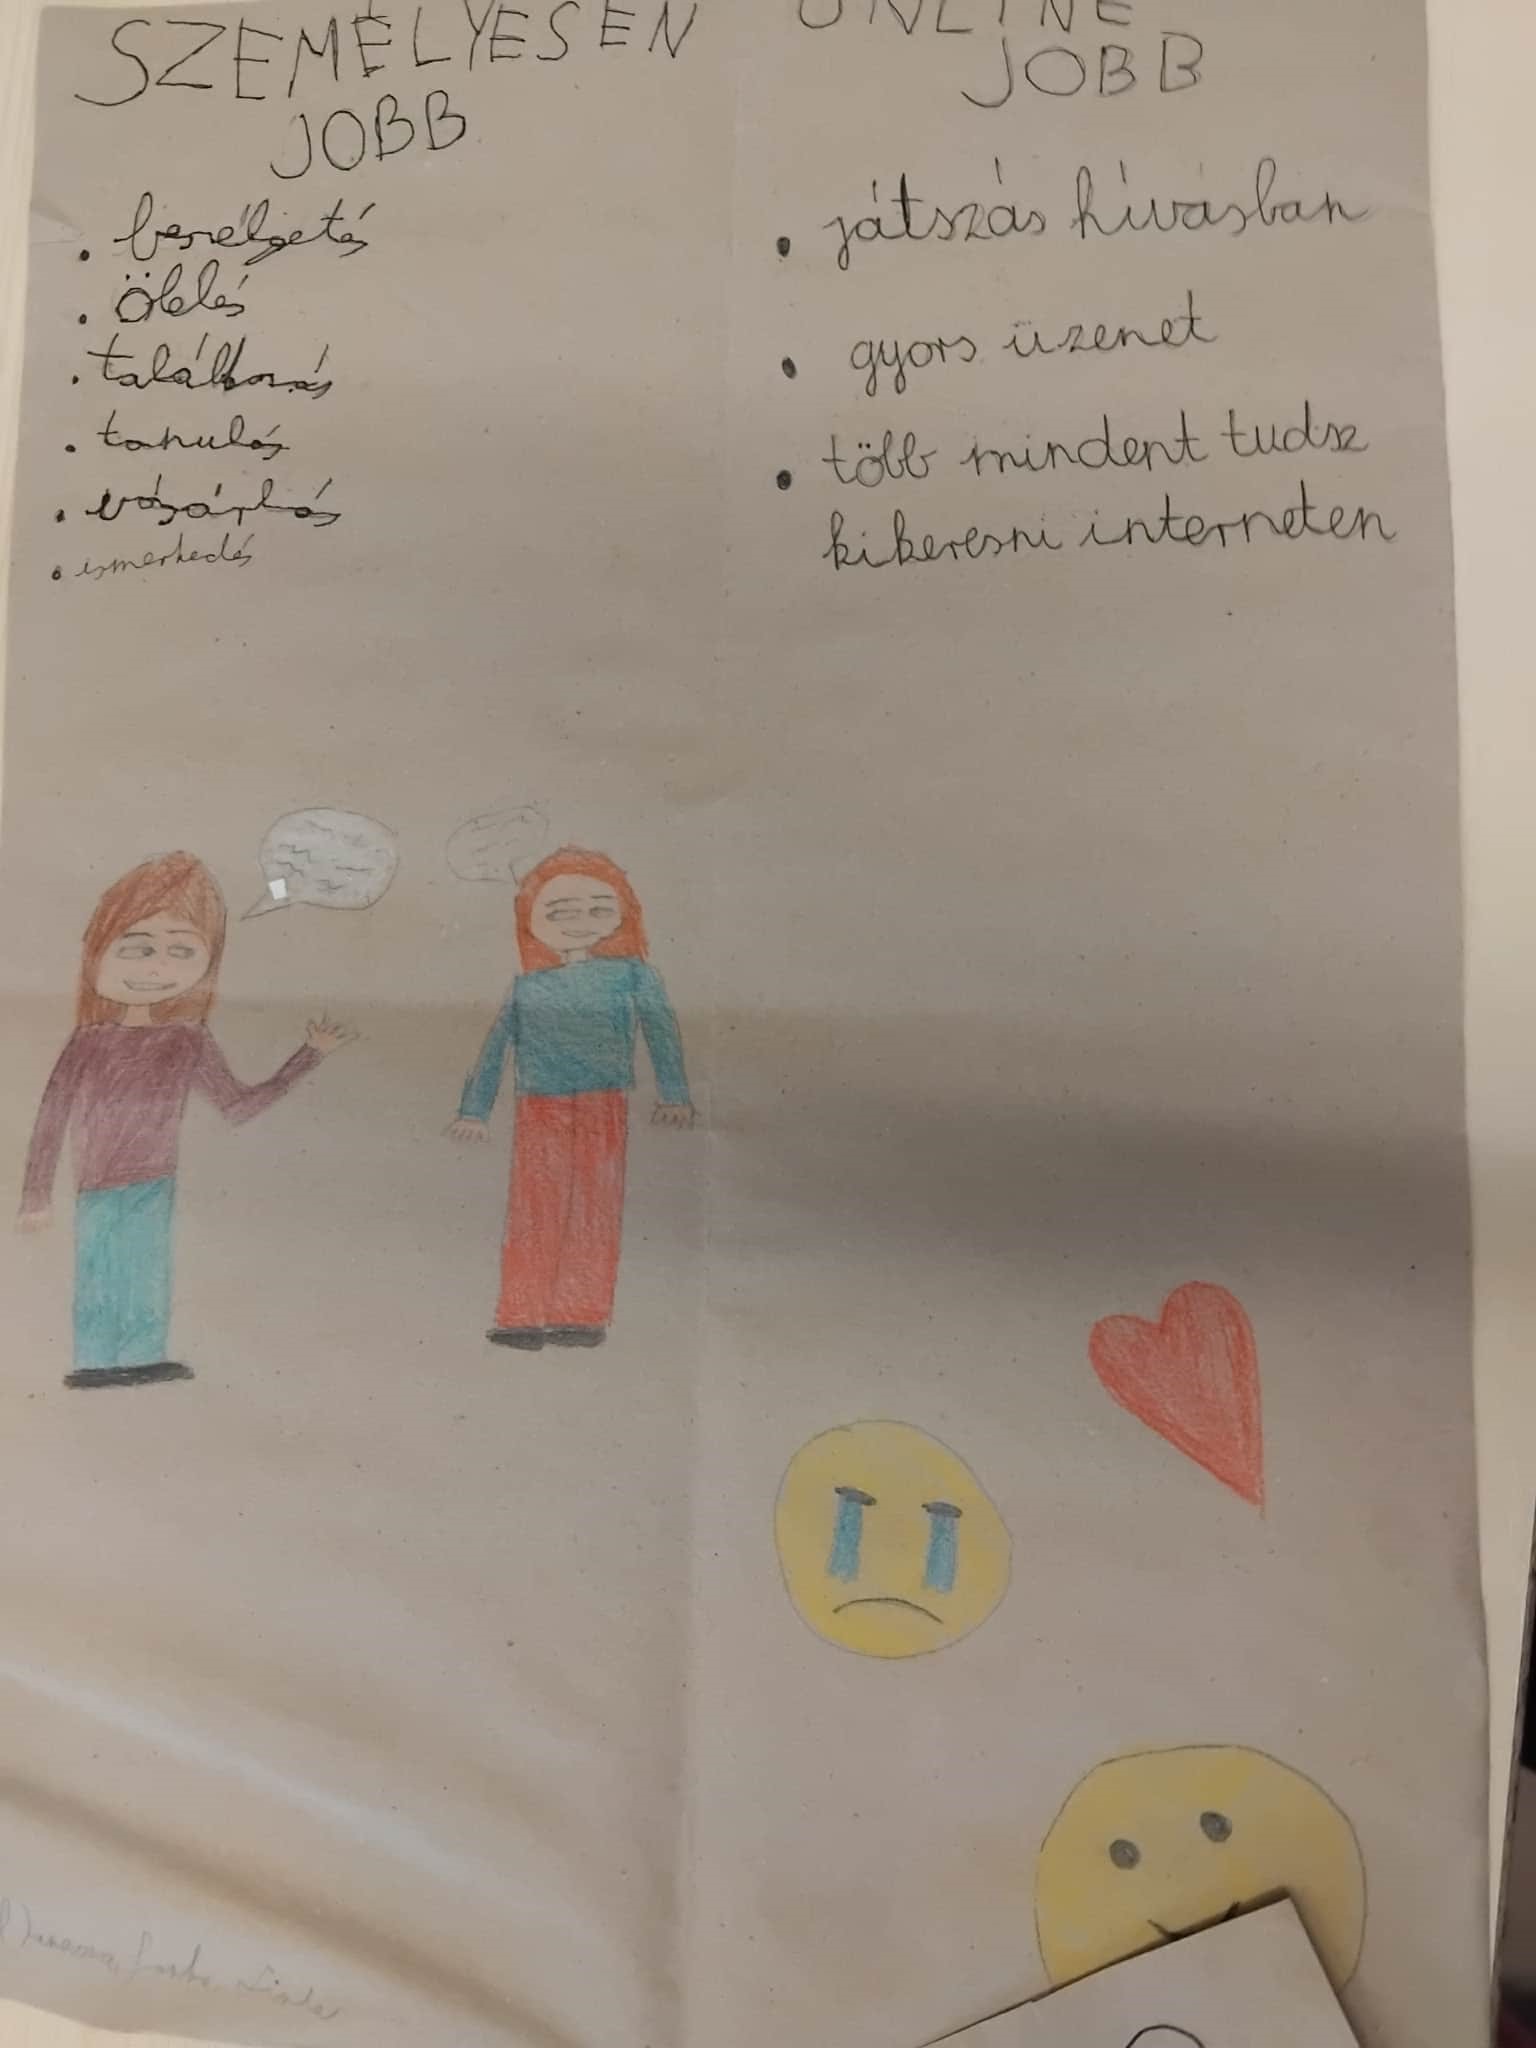 SZEMÉLYESEN
JOBB
• beszélgetés
• ölelés
• találkozás
• tanulás
• vásárlás
• ismerkedés
ONLINE
JOBB
• játszás hívásban
• gyors üzenet
• több mindent tudsz
kikeresni interneten